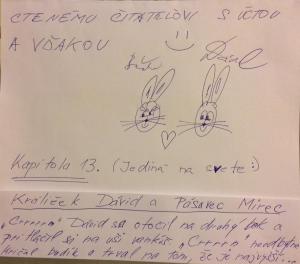 CTENÉMU ČITATEĽOVI S ÚCTOU
A VĎAKOU
Kapitola 13. (Jediná na svete :)
Králiček Dávid a Pásavec Mirec
„Crrrrn" Dávid sa otočil na druhý bok a
pritlačil si na uši vankúš. „Crrrrn" neodbytne
kričal budík a trval na tom, že je najvyšší...